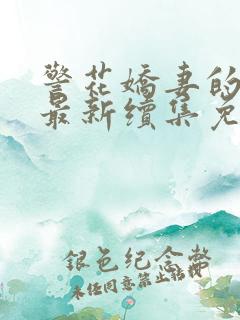 警花嬌妻的
最新續集免
銀色纪念幣
未经同意禁止转载